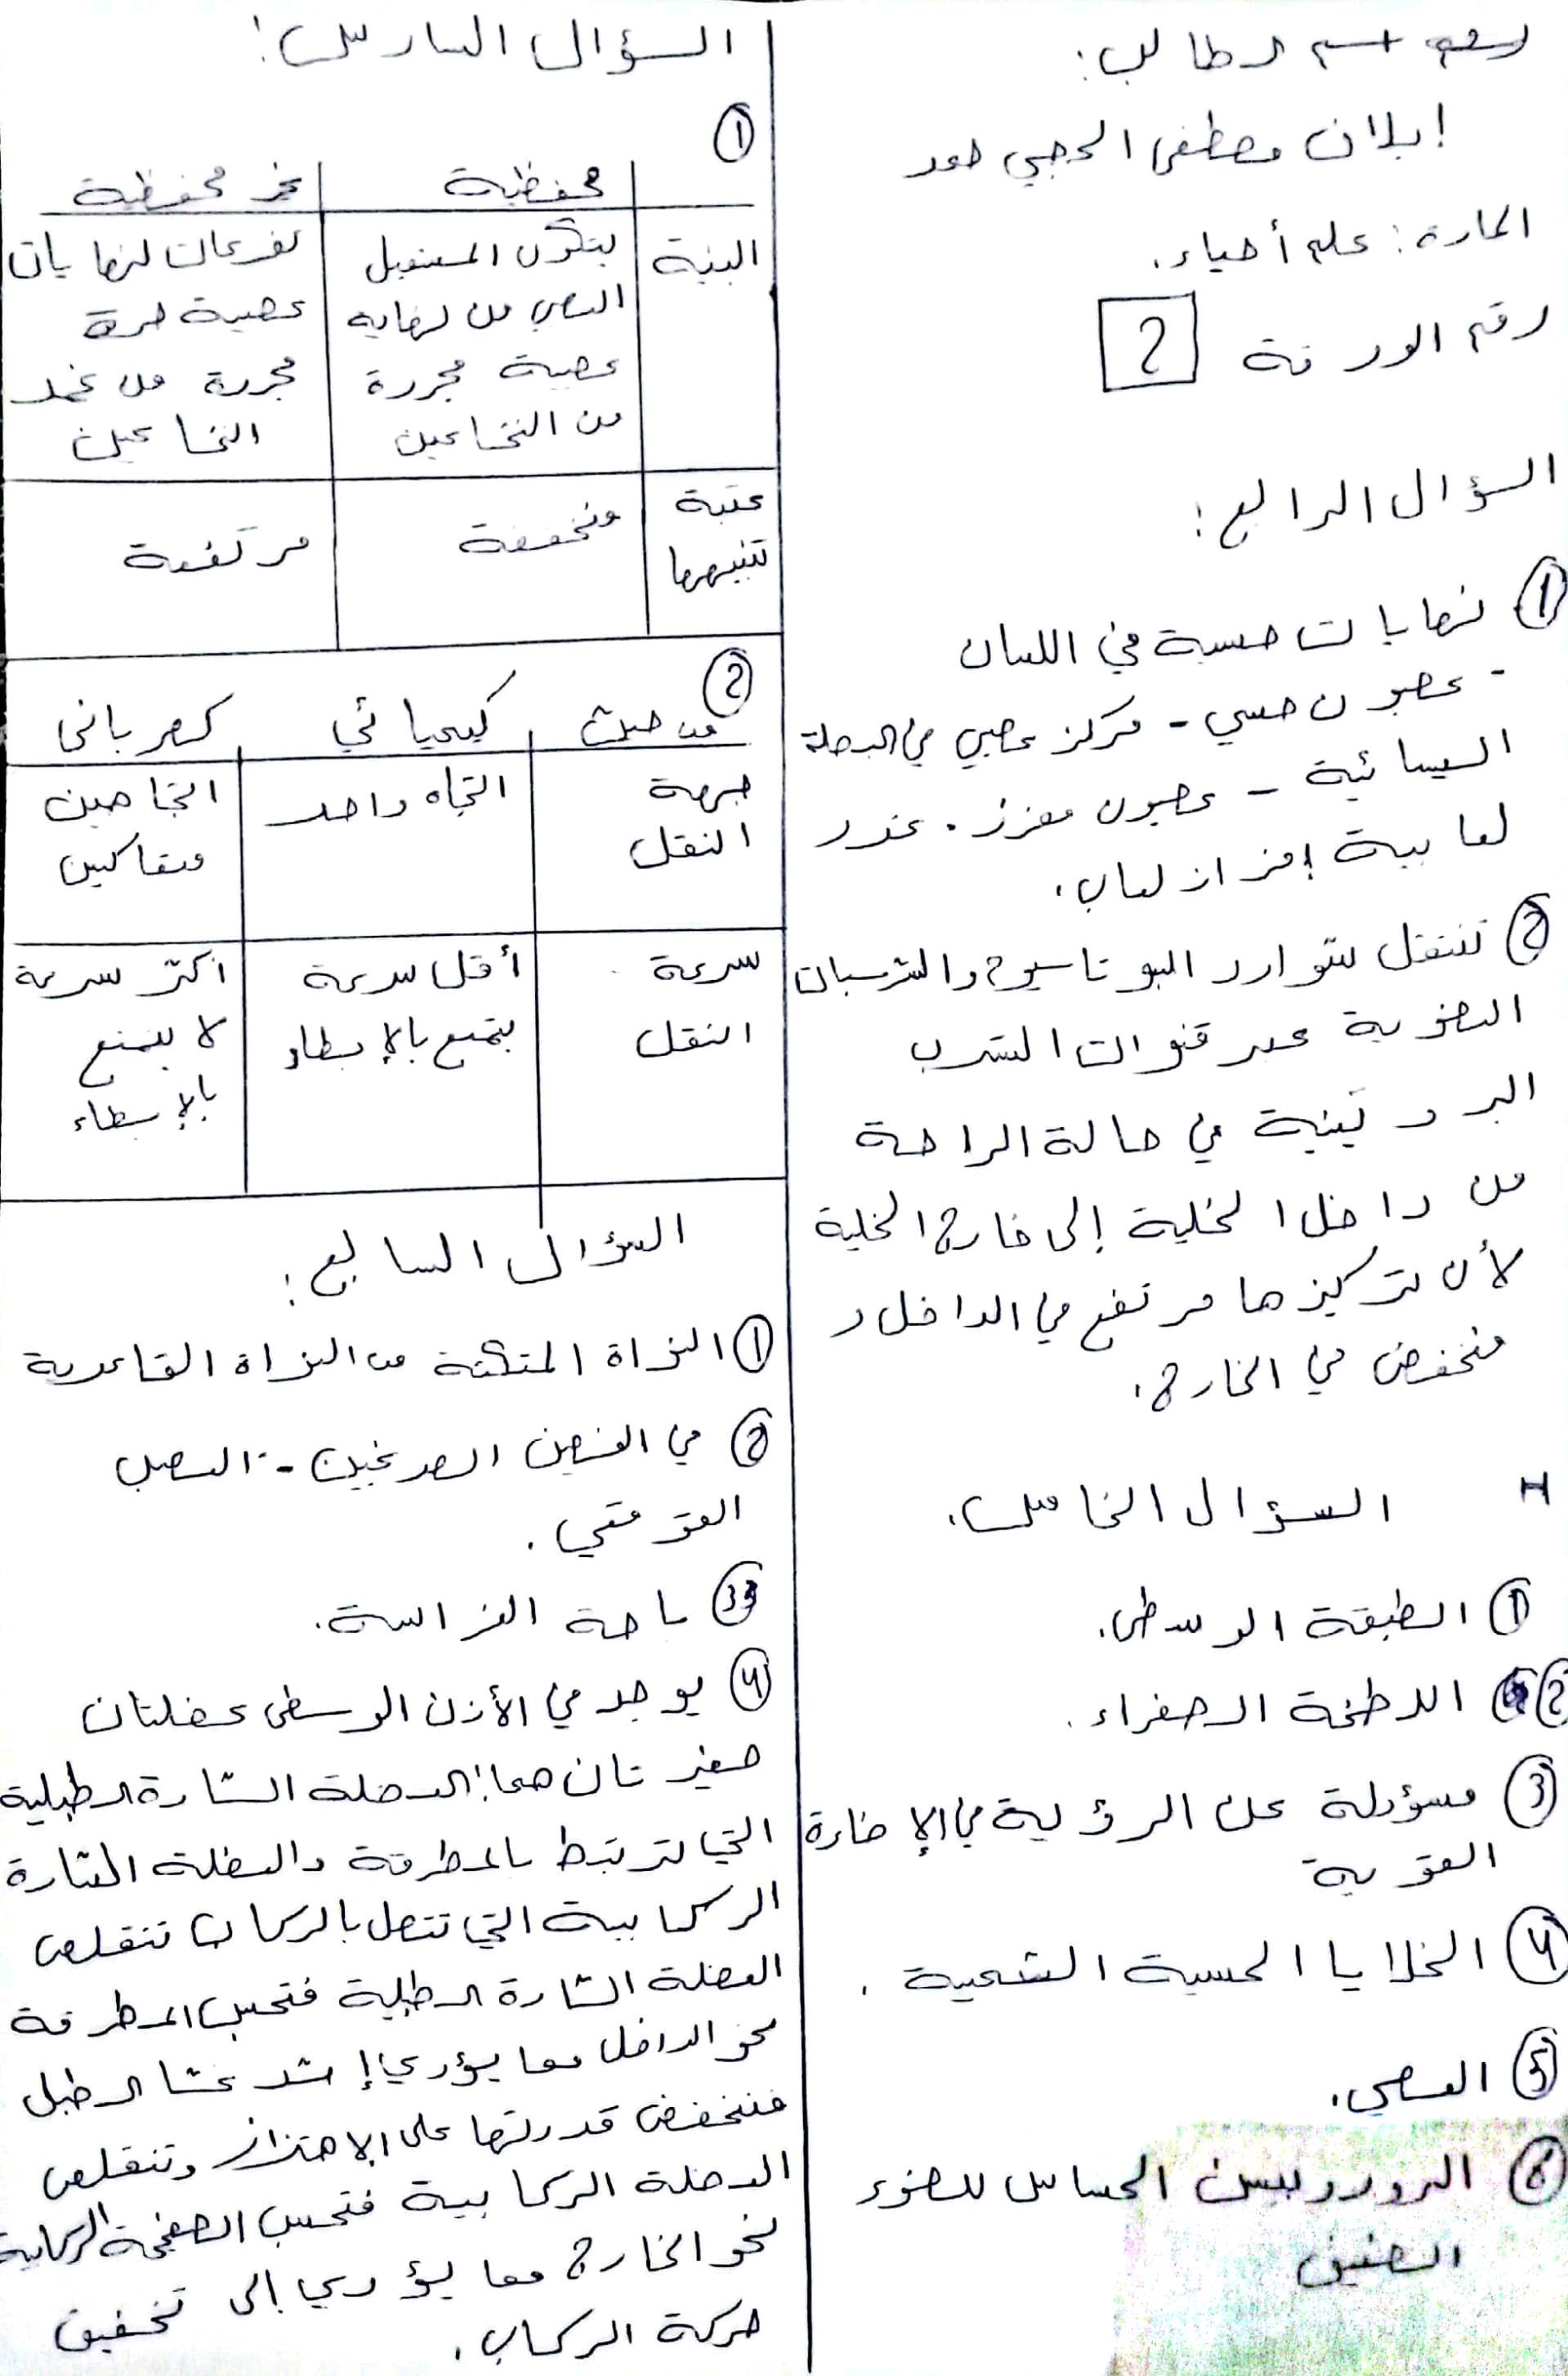 اسم الطالب:
إيلان مصطفى الحجي حمد
المادة: علم أحياء.
رقم الورقة 2
السؤال الرابع:
① نهايات حسية في اللسان
- عصبون حسي - مركز عصبي في البصلة
السيسائية - عصبون مفرز. غدد
لعابية إفراز لعاب.
② تنتقل شوارد البوتاسيوم والشرسبات
العضوية عبر قنوات التسرب
البروتينية في حالة الراحة
من داخل الخلية إلى خارج الخلية
لأن تركيزها مرتفع في الداخل و
منخفض في الخارج.
السؤال الخامس.
① الطبقة الوسطى.
② اللطخة الصفراء.
③ مسؤولة عن الرؤية في الإضاءة
القوية
④ الخلايا الحسية الشمية.
⑤ العصبي.
⑥ الرودوبسن الحساس للضوء
الضعيف
السؤال السادس:
①
محفظية | غير محفظية
البنية | يتكون المستقبل | تفرعات لنهايات
الحسي من نهاية | عصبية حرة
عصبية مجردة | مجردة من غمد
من النخاعين | النخاعين
عتبة تنبيهها | منخفضة | مرتفعة
②
من حيث | كيميائي | كهربائي
جهة | اتجاه واحد | اتجاهين
النقل | متعاكسين
سرعة | أقل سرعة | أكثر سرعة
النقل | يتمتع بالإبطاء | لا يتمتع
بالإبطاء
السؤال السابع:
① النواة المتكتة من النواة القاعدية
② في الفصين الصدغيين - العصب
القوقعي.
③ ساحة الفراسة.
④ يوجد في الأذن الوسطى عضلتان
صغيرتان هما: العضلة الشادة الطبلية
التي ترتبط بالمطرقة والعضلة الشادة
الركابية التي تتصل بالركاب تتقلص
العضلة الشادة الطبلية فتسحب المطرقة
نحو الداخل مما يؤدي إ شد غشا الطبل
فتنخفض قدرتها على الاهتزاز وتتقلص
العضلة الركابية فتسحب الصفيحة الركابية
نحو الخارج مما يؤدي إلى تخفيف
حركة الركاب.